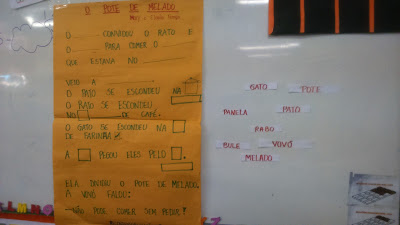 O POTE DE MELADO
O CONVIDOU O RATO E
O PARA COMER O
QUE ESTAVA NO
VEIO A
O PATO SE ESCONDEU NA
O RATO SE ESCONDEU
NO DE CAFÉ.
O GATO SE ESCONDEU NA
DE FARINHA
A PEGOU ELES PELO
ELA DIVIDIU O POTE DE MELADO,
A VOVÓ FALOU:
NÃO PODE COMER SEM PEDIR!
GATO POTE
PANELA PATO
RABO
BULE VOVÓ
MELADO